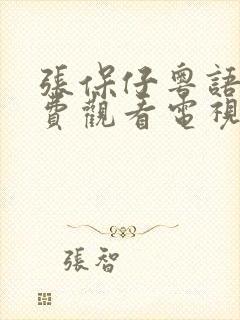 張保仔粵語
費觀看電視
張智